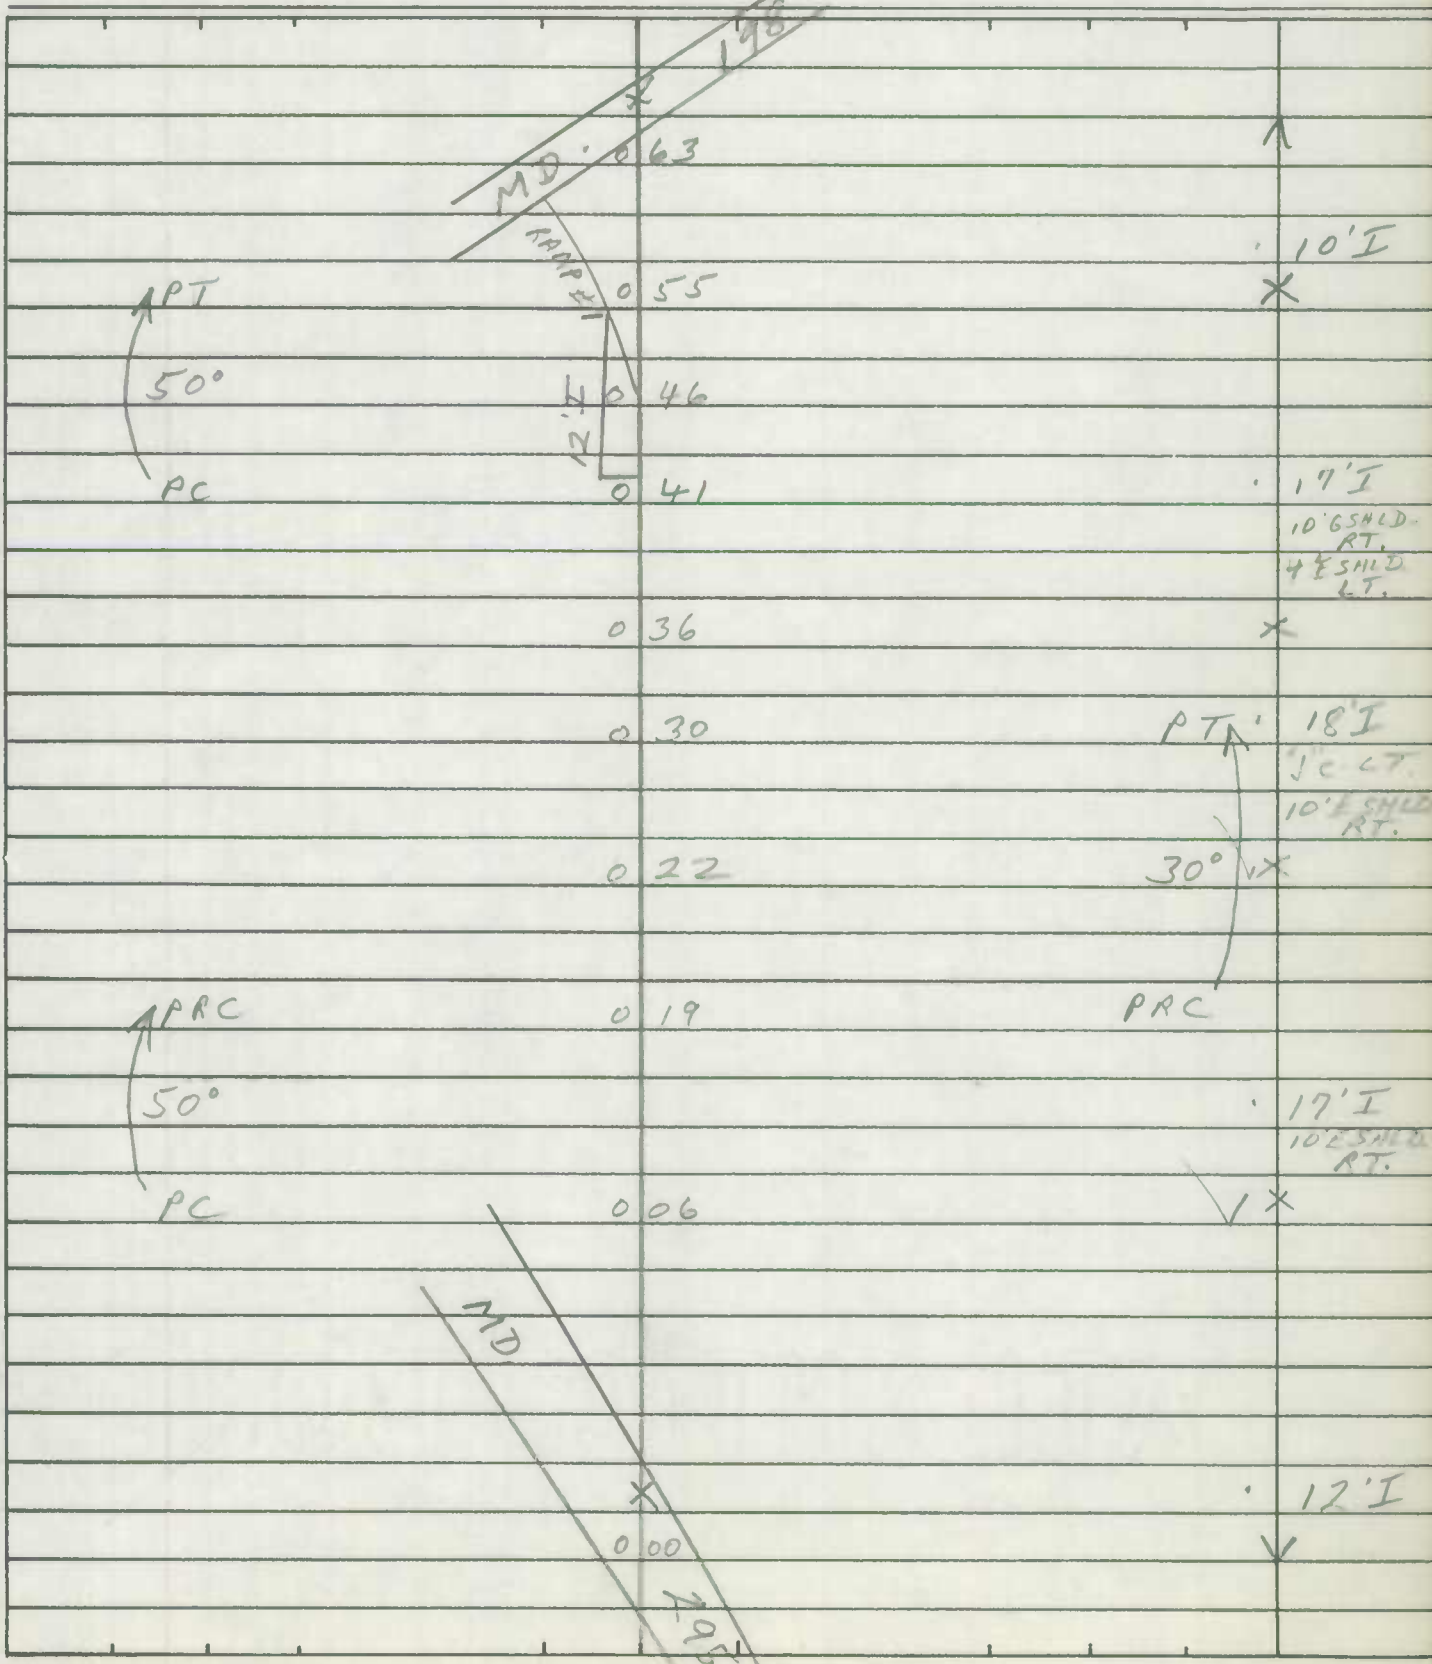 198
MD.
0 63
10' I
RAMP #1
PT
0 55
50°
12' I
0 46
PC
0 41
17' I
10' G SHLD.
RT.
4' E SHLD
LT.
0 36
0 30
PT
18' I
LT.
10' E SHLD
RT.
0 22
30°
PRC
0 19
PRC
50°
17' I
10' E SHLD
RT.
PC
0 06
MD.
12' I
0 00